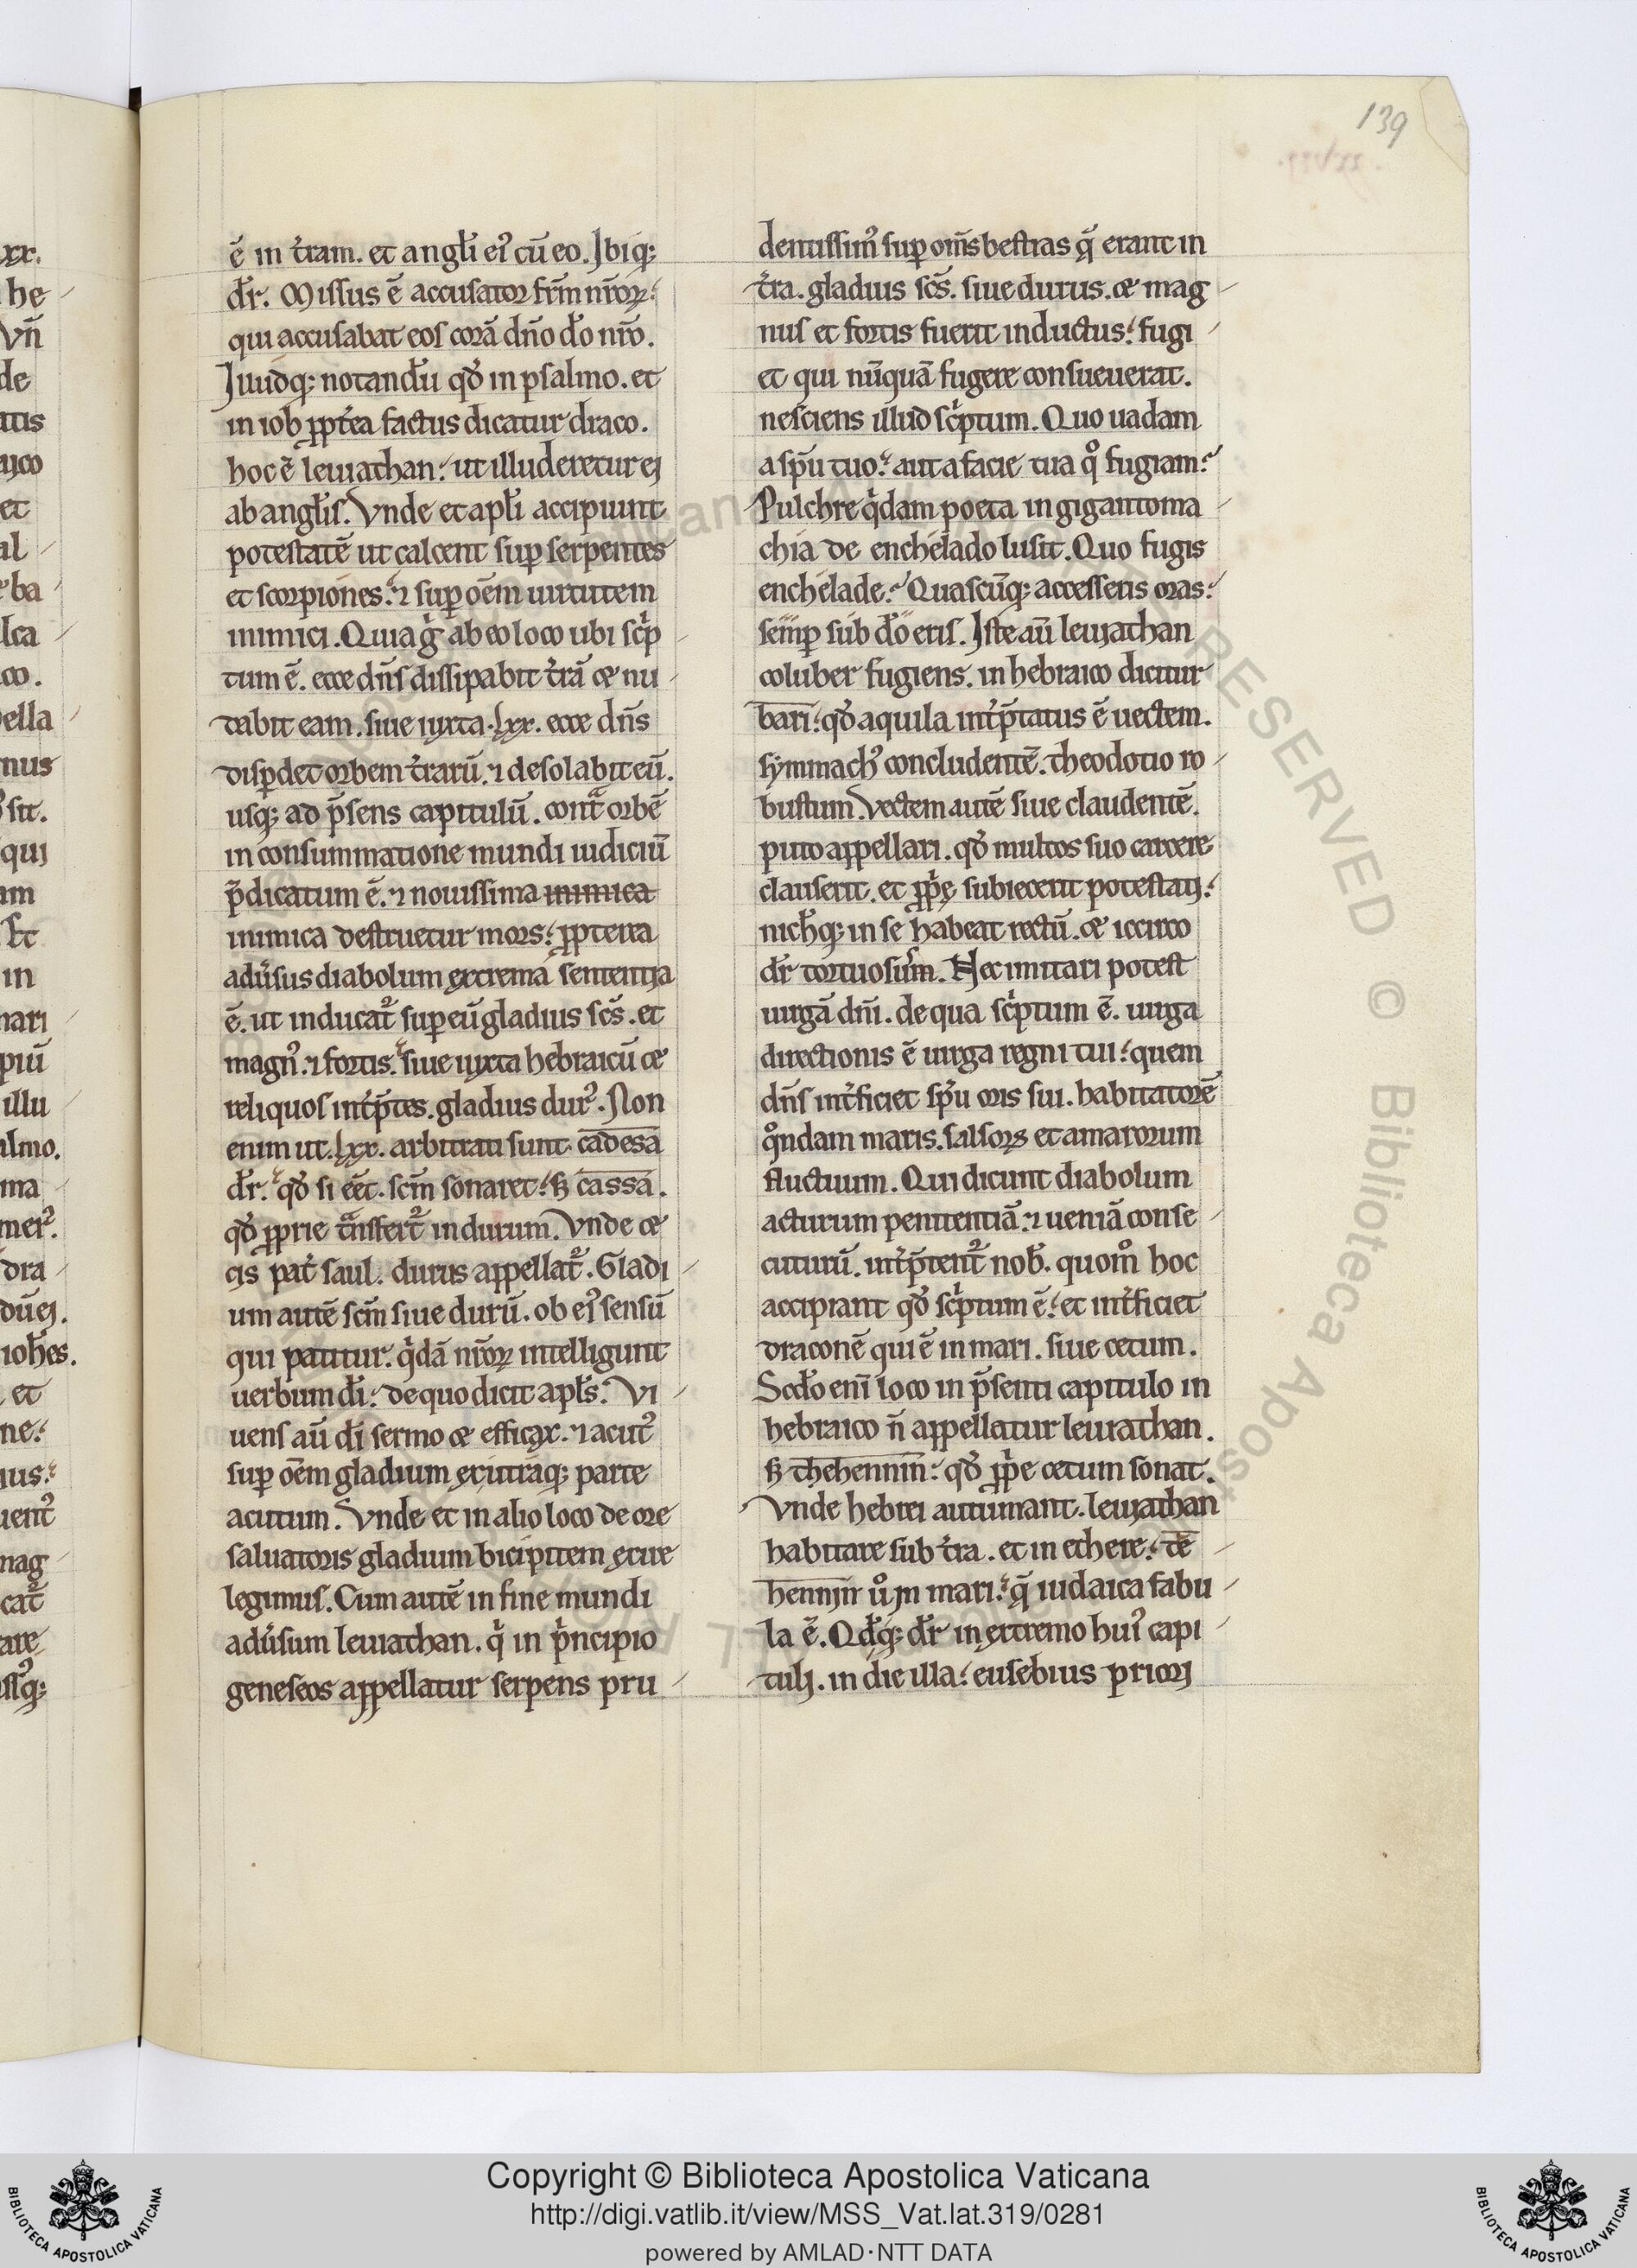 139
ē in t̄ram. et angl̄i ei᾿ cū eo. Jbiq;
dr̄. Missus ē accusator fr̄m nr̄oꝝ.
qui accusabat eos corā dn̄o dō nr̄o.
Juudq; notandū qd̄ in psalmo. et
in iob ꝓpt̄ea factus dicatur draco.
hoc ē leuiathan. ut illuderetur ej
ab angl̄is. Vnde et apl̄i accipiunt
potestatē ut calcent suꝑ serpentes
et scorpiones. ⁊ suꝑ oēm uirtutem
inimici. Quia g̊ ab eo loco ubi sc̓p
tum ē. ecce dn̄s dissipabit t̄rā & nu
dabit eam. siue iuxta .lxx. ecce dn̄s
disꝑdet orbem t̄rarū. ⁊ desolabit eū.
usq; ad p̄sens capitulū. cont̃ orbē
in consummatione mundi iudiciū
p̄dicatum ē. ⁊ nouissima inimica
inimica destruetur mors. ꝓpterea
adūsus diabolum extrema sententia
ē. ut inducat᷑ suꝑ eū gladius sc̄s. et
magn᾿. ⁊ fortis. siue iuxta hebraicū &
reliquos int̄p̄tes. gladius dur᾿. Non
enim ut .lxx. arbitrati sunt cadesa
dr̄. qd̄ si eēt. sc̄m sonaret. sꝫ cassa.
qd̄ ꝓprie t̃nsfert᷑ in durum. Vnde &
cis pat̄ saul. durus appellat᷑. Gladi
um autē sc̄m siue durū. ob ei᾿ sensū
qui patitur. q̓dā nr̄oꝝ intelligunt
uerbum dī. de quo dicit apl̄s. Vi
uens aū dī sermo & efficax. ⁊ acut᾿
suꝑ oēm gladium ex utraq; parte
acutum. Vnde et in alio loco de ore
saluatoris gladium bicipitem exire
legimus. Cum autē in fine mundi
adūsum leuiathan. q̓ in p̓ncipio
geneseos appellatur serpens pru
dentissim᾿ suꝑ om̄s bestias q̄ erant in
t̄ra. gladius sc̄s. siue durus. & mag
nus et fortis fuerit inductus. fugi
et qui nūquā fugere consueuerat.
nesciens illud sc̓ptum. Quo uadam
a spū tuo. aut a facie tua q̊ fugiam.
Pulchre q̓dam poeta in gigantoma
chia de enchelado lusit. Quo fugis
enchelade. Quascūq; accesseris oras.
semꝑ sub dō eris. Iste aū leuiathan
coluber fugiens. in hebraico dicitur
bari. qd̄ aquila int̄p̄tatus ē uectem.
symmach᾿ concludentē. theodotio ro
bustum. Vectem autē siue claudentē.
puto appellari. qd̄ multos suo carcere
clauserit. et ꝓp̓e subiecerit potestati.
nichq; in se habeat rectū. & iccirco
dr̄ tortuosum. Nec imitari potest
uirgā dn̄i. de qua sc̓ptum ē. uirga
directionis ē uirga regni tui. quem
dn̄s int̄ficiet spū oris sui. habitatorē
q̊ndam maris. salsoꝝ et amarorum
fluctuum. Qui dicunt diabolum
acturum penitentiā. ⁊ ueniā conse
cuturū. int̄p̄tent᷑ nob̄. quom̊ hoc
accipiant qd̄ sc̓ptum ē. et int̄ficiet
draconē qui ē in mari. siue cetum.
Scd̄o enī loco in p̄senti capitulo in
hebraico n̄ appellatur leuiathan.
sꝫ thehennin. qd̄ ꝓp̓e cetum sonat.
Vnde hebrei autumant. leuiathan
habitare sub t̄ra. et in ethere. te
hennin ů in mari. q̄ iudaica fabu
la ē. Qd̄q; dr̄ in extremo hui᾿ capi
tuli. in die illa. eusebius priori
Copyright © Biblioteca Apostolica Vaticana
http://digi.vatlib.it/view/MSS_Vat.lat.319/0281
powered by AMLAD·NTT DATA
BIBLIOTECA APOSTOLICA VATICANA
BIBLIOTECA APOSTOLICA VATICANA